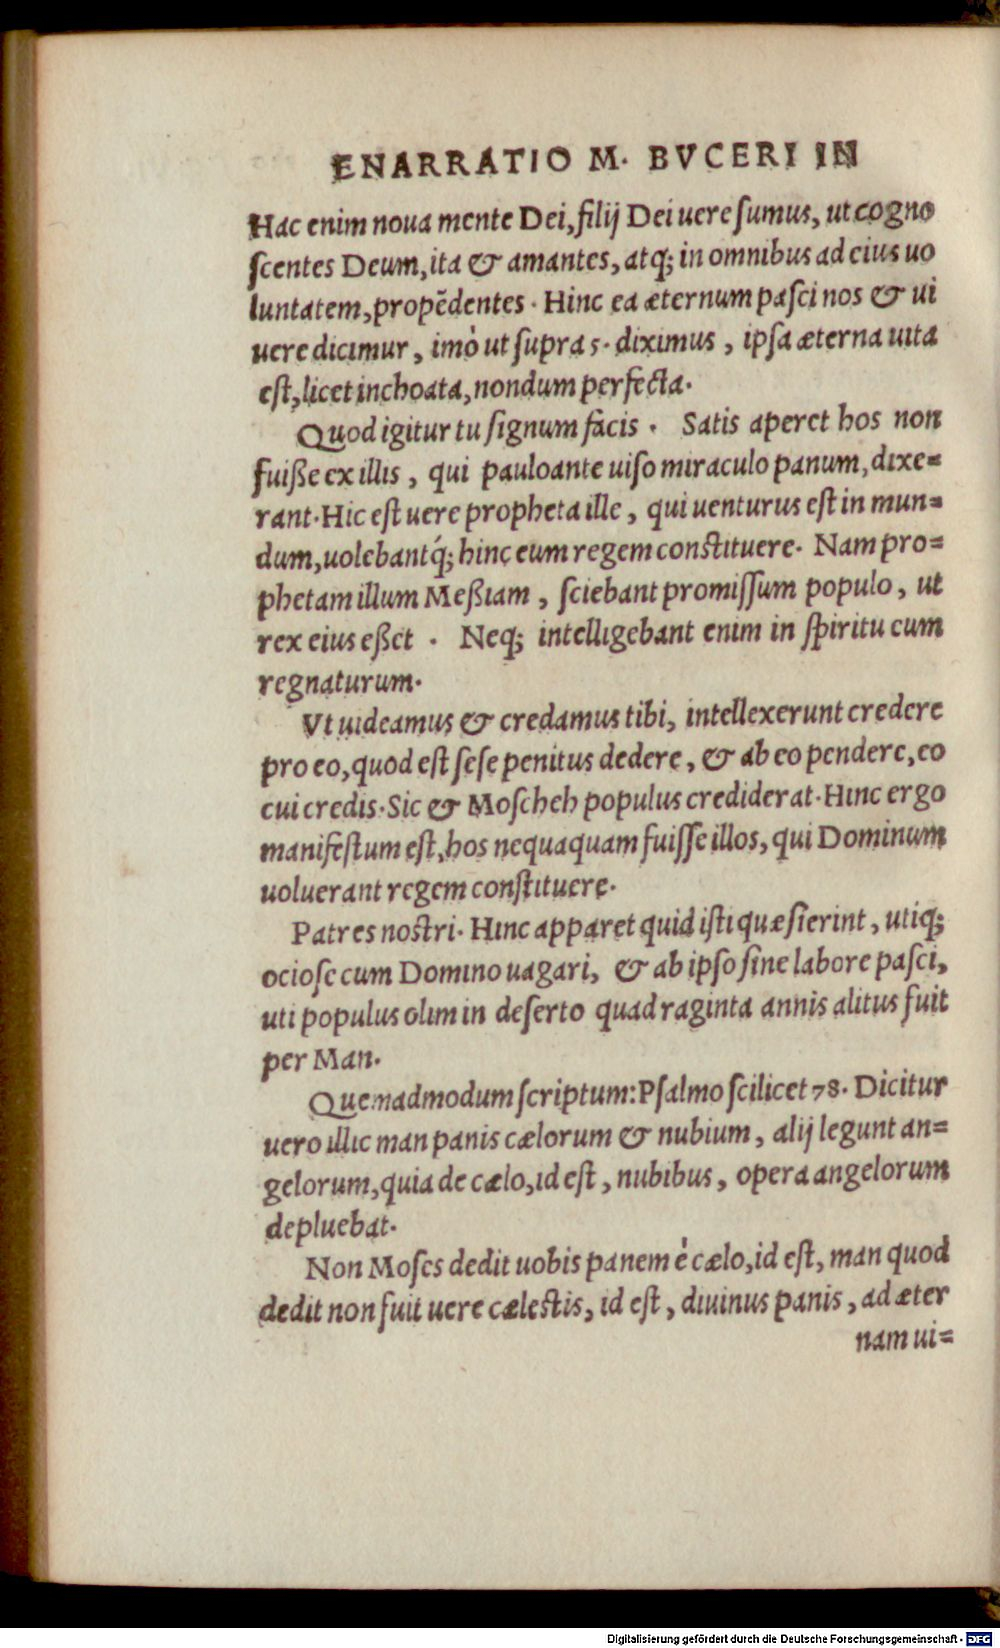 ENARRATIO M. BVCERI IN
Hac enim noua mente Dei, filij Dei uere sumus, ut cogno
scentes Deum, ita & amantes, atq; in omnibus ad eius uo
luntatem, propẽdentes. Hinc ea æternum pasci nos & ui
uere dicimur, imò ut supra 5. diximus, ipsa æterna uita
est, licet inchoata, nondum perfecta.
Quod igitur tu signum facis. Satis aperet hos non
fuiße ex illis, qui pauloante uiso miraculo panum, dixe=
rant. Hic est uere propheta ille, qui uenturus est in mun=
dum, uolebantq́; hinc eum regem constituere. Nam pro=
phetam illum Meßiam, sciebant promissum populo, ut
rex eius eßet. Neq; intelligebant enim in spiritu eum
regnaturum.
Vt uideamus & credamus tibi, intellexerunt credere
pro eo, quod est sese penitus dedere, & ab eo pendere, eo
cui credis. Sic & Moscheh populus crediderat. Hinc ergo
manifestum est, hos nequaquam fuisse illos, qui Dominum
uoluerant regem constituere.
Patres nostri. Hinc apparet quid isti quæsierint, utiq;
ociose cum Domino uagari, & ab ipso sine labore pasci,
uti populus olim in deserto quadraginta annis alitus fuit
per Man.
Quemadmodum scriptum: Psalmo scilicet 78. Dicitur
uero illic man panis cælorum & nubium, alij legunt an=
gelorum, quia de cælo, id est, nubibus, opera angelorum
depluebat.
Non Moses dedit uobis panem è cælo, id est, man quod
dedit non fuit uere cælestis, id est, diuinus panis, ad æter
nam ui=
Digitalisierung gefördert durch die Deutsche Forschungsgemeinschaft - DFG